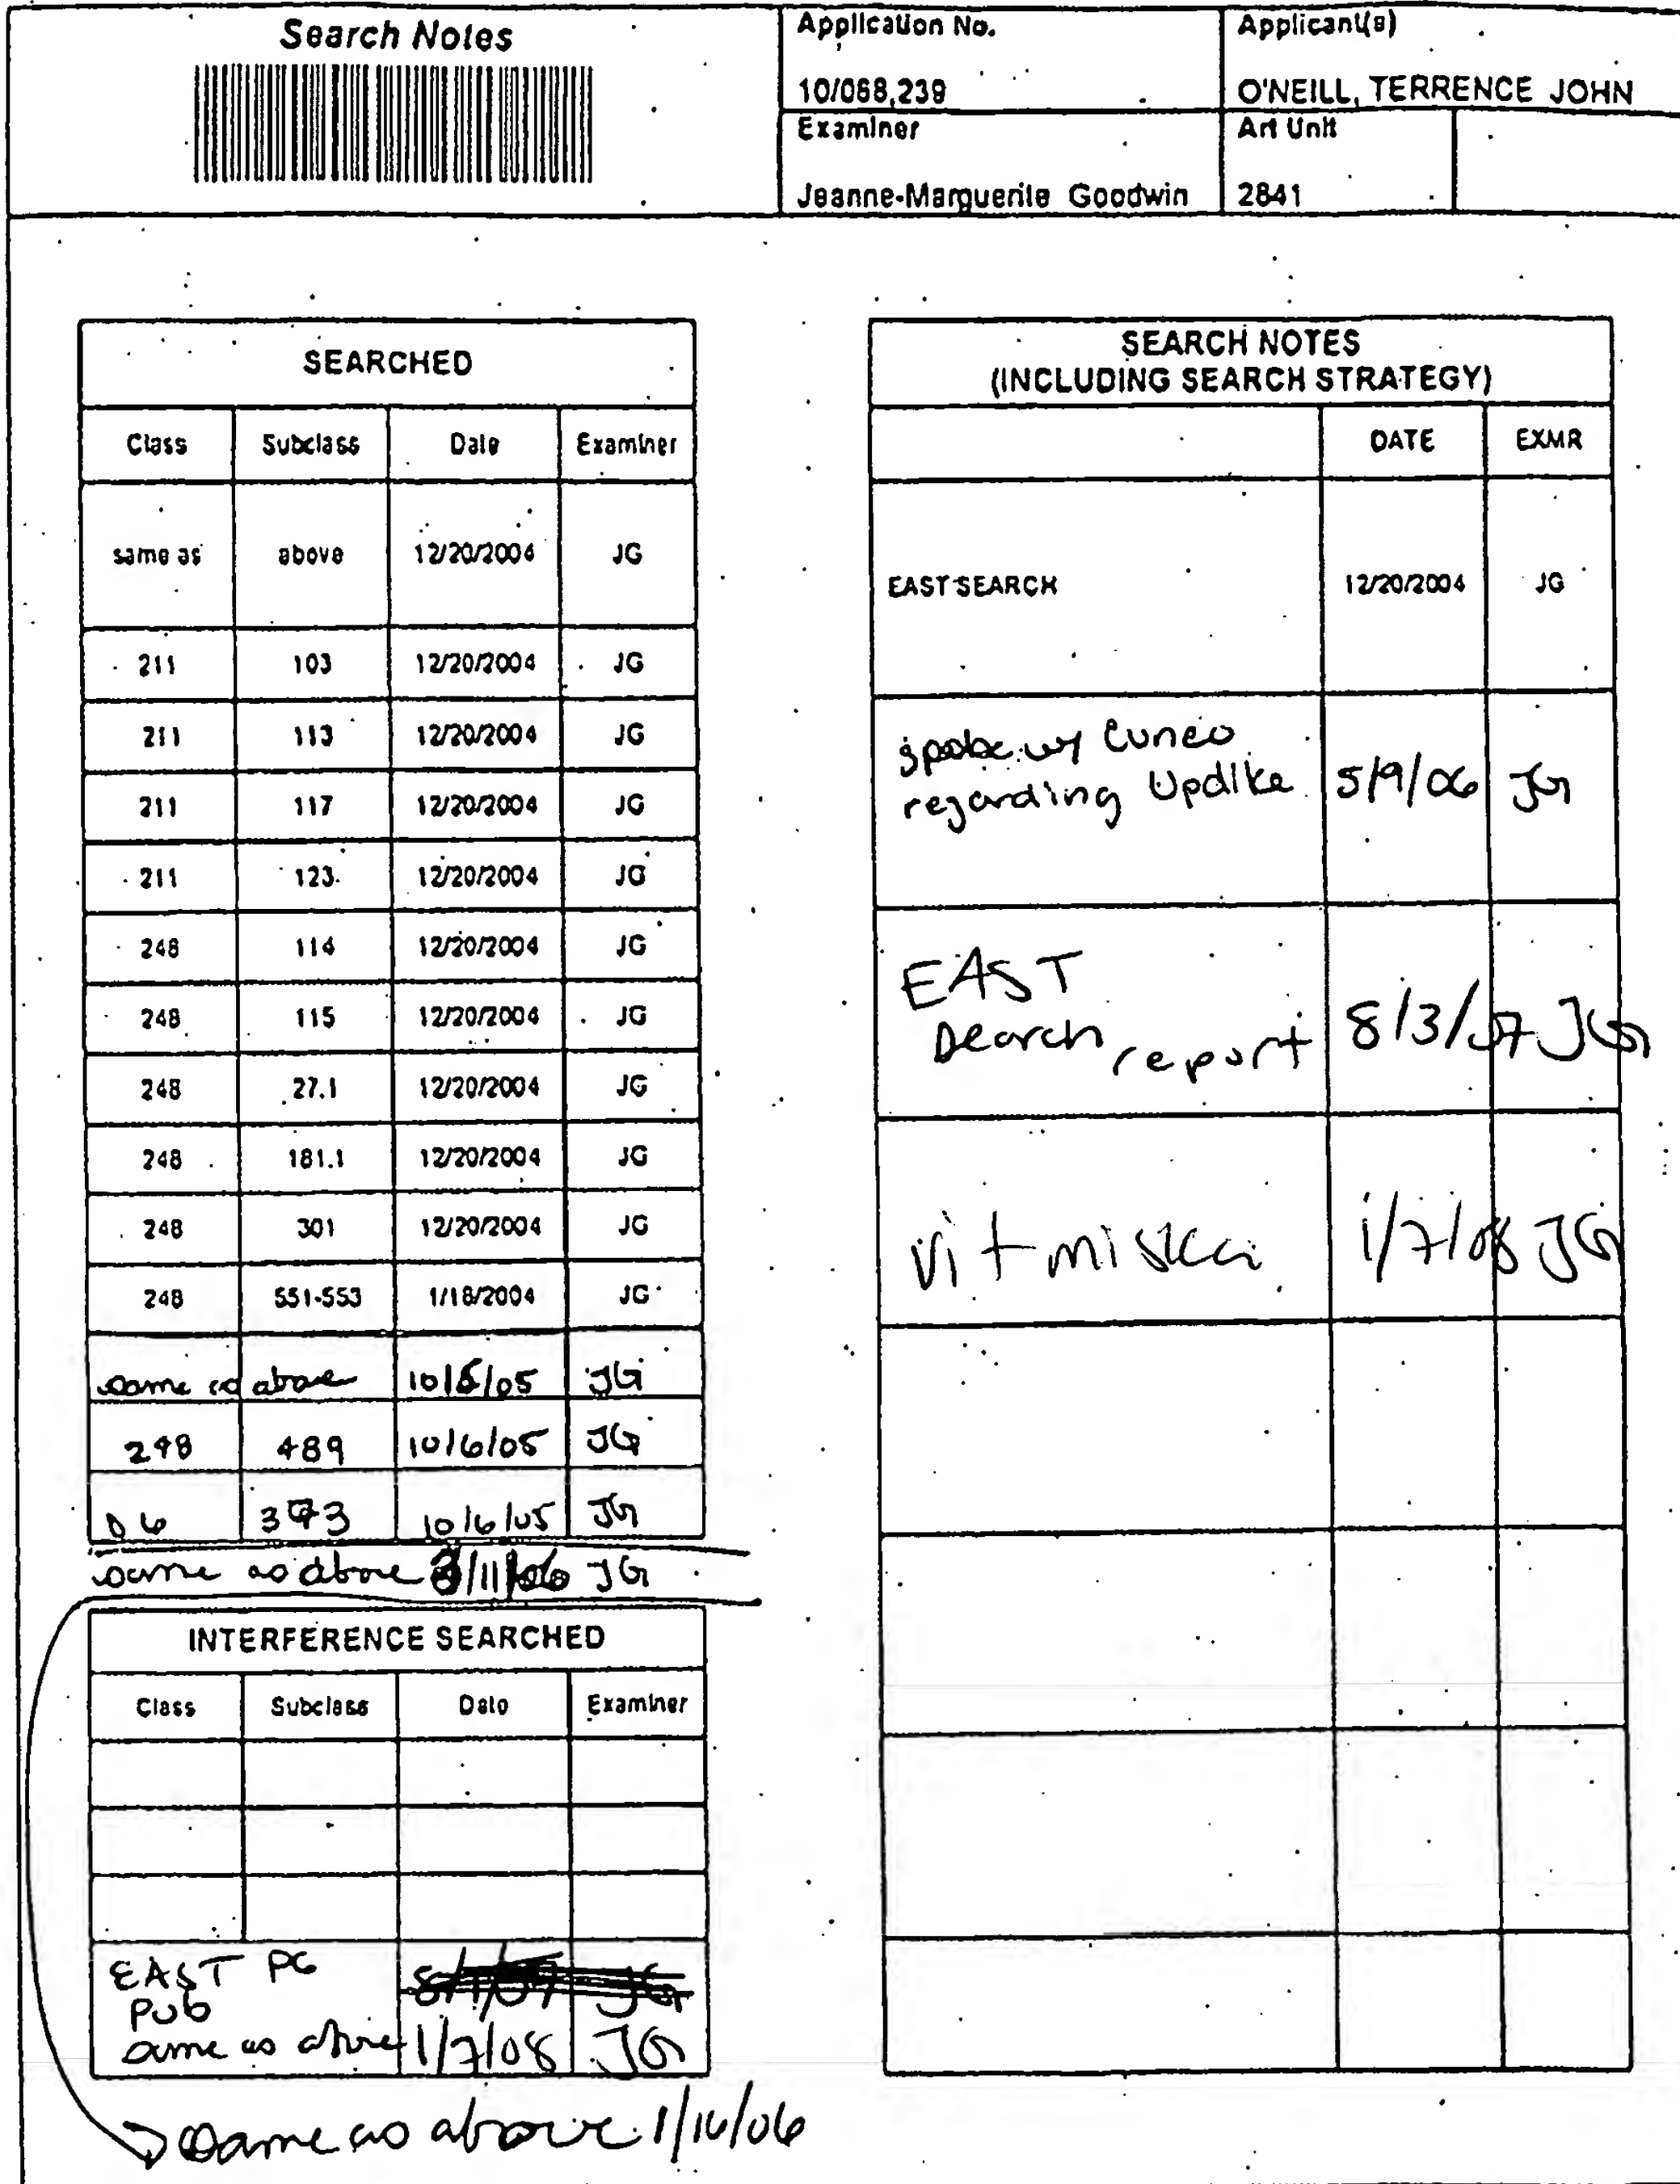 Search Notes
Application No.
10/068,239
Applicant(s)
O'NEILL, TERRENCE JOHN
Examiner
Jeanne-Marguerite Goodwin
Art Unit
2841
SEARCHED
Class Subclass Date Examiner
same as above 12/20/2004 JG
211 103 12/20/2004 JG
211 113 12/20/2004 JG
211 117 12/20/2004 JG
211 123 12/20/2004 JG
248 114 12/20/2004 JG
248 115 12/20/2004 JG
248 27.1 12/20/2004 JG
248 181.1 12/20/2004 JG
248 301 12/20/2004 JG
248 551-553 1/18/2004 JG
same as above 10/5/05 JG
248 489 10/6/05 JG
D6 373 10/6/05 JG
same as above JG
INTERFERENCE SEARCHED
Class Subclass Date Examiner
EAST PG
PUB
same as above 1/7/08 JG
same as above 1/16/06
SEARCH NOTES
(INCLUDING SEARCH STRATEGY)
DATE EXMR
EAST SEARCH 12/20/2004 JG
spoke w/ Cuneo
regarding Updike 5/9/06 JG
EAST
search report 8/3/07 JG
1/7/08 JG